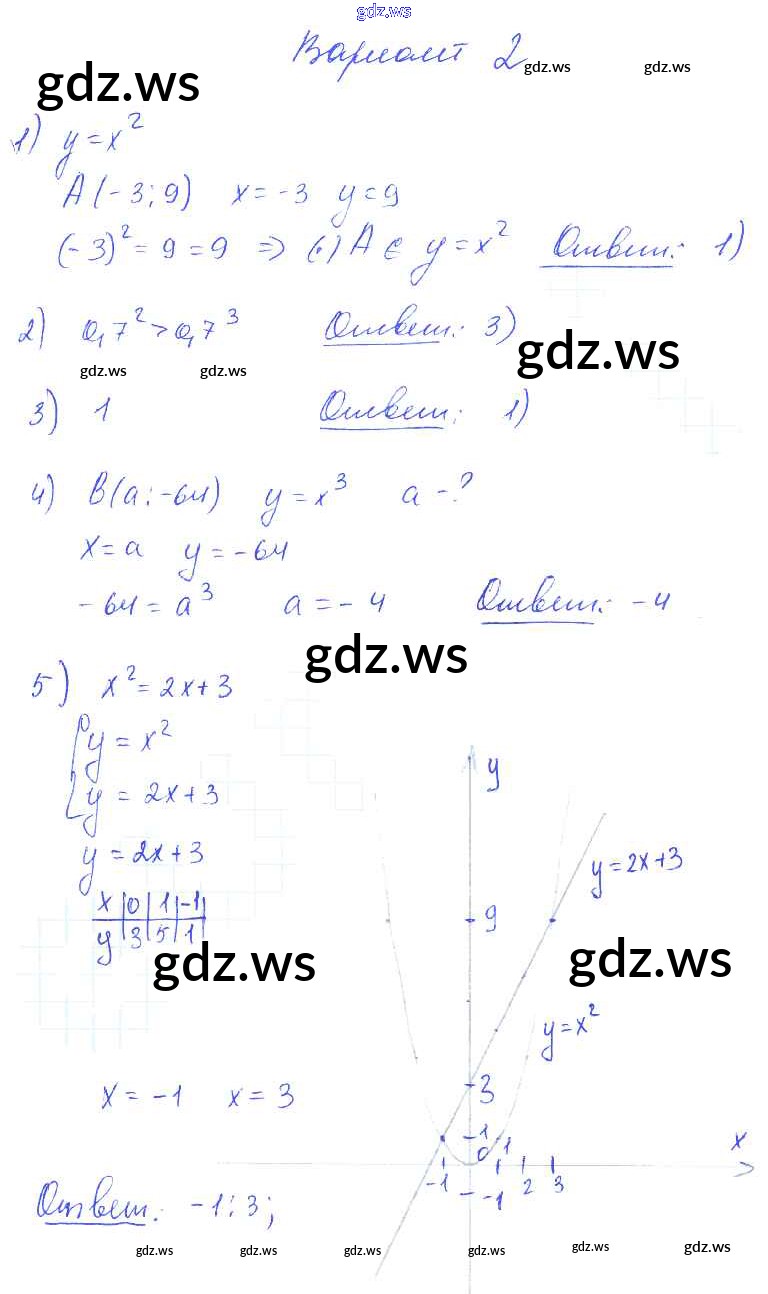 gdz.ws
Вариант 2
gdz.ws gdz.ws gdz.ws
1) y = x²
A(-3; 9) x = -3 y = 9
(-3)² = 9 = 9 => (·) A ∈ y = x² Ответ: 1)
2) 0,7² > 0,7³ Ответ: 3)
gdz.ws gdz.ws gdz.ws
3) 1 Ответ: 1)
4) B(a; -64) y = x³ a - ?
x = a y = -64
-64 = a³ a = -4 Ответ: -4
gdz.ws
5) x² = 2x+3
{ y = x²
y = 2x+3
y = 2x+3
x | 0 | 1 | -1 |
y | 3 | 5 | 1 |
gdz.ws gdz.ws
y
y = 2x+3
9
y = x²
3
-1 1
0
x
-1 -1 2 3
x = -1 x = 3
Ответ: -1; 3;
gdz.ws gdz.ws gdz.ws gdz.ws gdz.ws gdz.ws